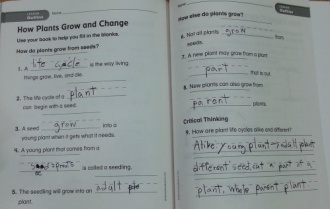 How Plants Grow and Change
Use your book to help you fill in the blanks.
How do plants grow from seeds?
1. A life cycle is the way living
things grow, live, and die.
2. The life cycle of a plant
can begin with a seed.
3. A seed grow into a
young plant when it gets what it needs.
4. A young plant that comes from a
is called a seedling.
5. The seedling will grow into an adult
plant.
How else do plants grow?
6. Not all plants grow from
seeds.
7. A new plant may grow from a plant
part that is cut.
8. New plants can also grow from
parent plants.
Critical Thinking
9. How are plant life cycles alike and different?
Alike: young plant → adult plant
different: seed, cut a part of a
plant, whole parent plant